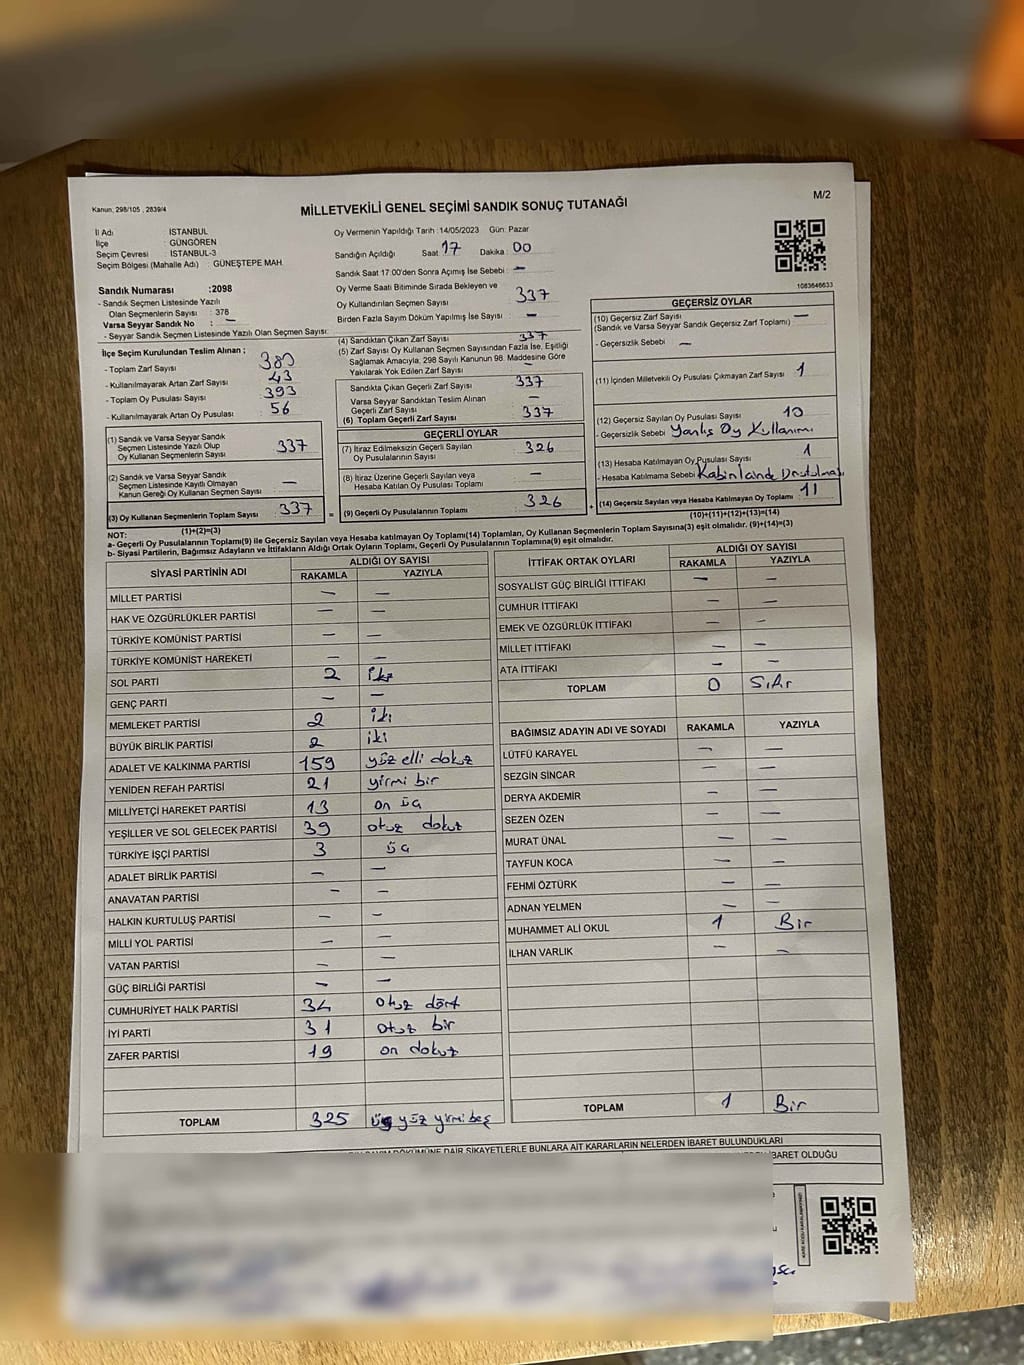 Kanun, 298/105 , 2839/4
MİLLETVEKİLİ GENEL SEÇİMİ SANDIK SONUÇ TUTANAĞI
M/2
İl Adı : İSTANBUL
İlçe : GÜNGÖREN
Seçim Çevresi : İSTANBUL-3
Seçim Bölgesi (Mahalle Adı) : GÜNEŞTEPE MAH.
Sandık Numarası :2098
- Sandık Seçmen Listesinde Yazılı
Olan Seçmenlerin Sayısı : 378
Varsa Seyyar Sandık No : —
- Seyyar Sandık Seçmen Listesinde Yazılı Olan Seçmen Sayısı:
Oy Vermenin Yapıldığı Tarih :14/05/2023 Gün: Pazar
Sandığın Açıldığı Saat 17 Dakika : 00
Sandık Saat 17:00'den Sonra Açımış İse Sebebi : —
Oy Verme Saati Bitiminde Sırada Bekleyen ve
Oy Kullandırılan Seçmen Sayısı : 337
Birden Fazla Sayım Döküm Yapılmış İse Sayısı : —
1083646633
İlçe Seçim Kurulundan Teslim Alınan ;
- Toplam Zarf Sayısı : 380
- Kullanılmayarak Artan Zarf Sayısı : 43
- Toplam Oy Pusulası Sayısı : 393
- Kullanılmayarak Artan Oy Pusulası : 56
(1) Sandık ve Varsa Seyyar Sandık
Seçmen Listesinde Yazılı Olup
Oy Kullanan Seçmenlerin Sayısı : 337
(2) Sandık ve Varsa Seyyar Sandık
Seçmen Listesinde Kayıtlı Olmayan
Kanun Gereği Oy Kullanan Seçmen Sayısı : —
(3) Oy Kullanan Seçmenlerin Toplam Sayısı : 337
(1)+(2)=(3)
(4) Sandıktan Çıkan Zarf Sayısı : 337
(5) Zarf Sayısı Oy Kullanan Seçmen Sayısından Fazla İse, Eşitliği
Sağlamak Amacıyla, 298 Sayılı Kanunun 98. Maddesine Göre
Yakılarak Yok Edilen Zarf Sayısı : —
Sandıkta Çıkan Geçerli Zarf Sayısı : 337
Varsa Seyyar Sandıktan Teslim Alınan
Geçerli Zarf Sayısı : —
(6) Toplam Geçerli Zarf Sayısı : 337
GEÇERLİ OYLAR
(7) İtiraz Edilmeksizin Geçerli Sayılan
Oy Pusulalarının Sayısı : 326
(8) İtiraz Üzerine Geçerli Sayılan veya
Hesaba Katılan Oy Pusulası Toplamı : —
= (9) Geçerli Oy Pusulalarının Toplamı : 326
GEÇERSİZ OYLAR
(10) Geçersiz Zarf Sayısı : —
(Sandık ve Varsa Seyyar Sandık Geçersiz Zarf Toplamı)
- Geçersizlik Sebebi : —
(11) İçinden Milletvekili Oy Pusulası Çıkmayan Zarf Sayısı : 1
(12) Geçersiz Sayılan Oy Pusulası Sayısı : 10
- Geçersizlik Sebebi : Yanlış Oy Kullanımı
(13) Hesaba Katılmayan Oy Pusulası Sayısı : 1
- Hesaba Katılmama Sebebi : Kabin İcinde Unutulması
+ (14) Geçersiz Sayılan veya Hesaba Katılmayan Oy Toplamı : 11
(10)+(11)+(12)+(13)=(14)
NOT:
a- Geçerli Oy Pusulalarının Toplamı(9) ile Geçersiz Sayılan veya Hesaba katılmayan Oy Toplamı(14) Toplamları, Oy Kullanan Seçmenlerin Toplam Sayısına(3) eşit olmalıdır. (9)+(14)=(3)
b- Siyasi Partilerin, Bağımsız Adayların ve İttifakların Aldığı Ortak Oyların Toplamı, Geçerli Oy Pusulalarının Toplamına(9) eşit olmalıdır.
SİYASİ PARTİNİN ADI ALDIĞI OY SAYISI
RAKAMLA YAZIYLA
MİLLET PARTİSİ — —
HAK VE ÖZGÜRLÜKLER PARTİSİ — —
TÜRKİYE KOMÜNİST PARTİSİ — —
TÜRKİYE KOMÜNİST HAREKETİ — —
SOL PARTİ 2 iki
GENÇ PARTİ — —
MEMLEKET PARTİSİ 2 iki
BÜYÜK BİRLİK PARTİSİ 2 iki
ADALET VE KALKINMA PARTİSİ 159 yüz elli dokuz
YENİDEN REFAH PARTİSİ 21 yirmi bir
MİLLİYETÇİ HAREKET PARTİSİ 13 on üç
YEŞİLLER VE SOL GELECEK PARTİSİ 39 otuz dokuz
TÜRKİYE İŞÇİ PARTİSİ 3 üç
ADALET BİRLİK PARTİSİ — —
ANAVATAN PARTİSİ — —
HALKIN KURTULUŞ PARTİSİ — —
MİLLİ YOL PARTİSİ — —
VATAN PARTİSİ — —
GÜÇ BİRLİĞİ PARTİSİ — —
CUMHURİYET HALK PARTİSİ 34 otuz dört
İYİ PARTİ 31 otuz bir
ZAFER PARTİSİ 19 on dokuz
TOPLAM 325 üç yüz yirmi beş
İTTİFAK ORTAK OYLARI ALDIĞI OY SAYISI
RAKAMLA YAZIYLA
SOSYALİST GÜÇ BİRLİĞİ İTTİFAKI — —
CUMHUR İTTİFAKI — —
EMEK VE ÖZGÜRLÜK İTTİFAKI — —
MİLLET İTTİFAKI — —
ATA İTTİFAKI — —
TOPLAM 0 Sıfır
BAĞIMSIZ ADAYIN ADI VE SOYADI RAKAMLA YAZIYLA
LÜTFÜ KARAYEL — —
SEZGİN SİNCAR — —
DERYA AKDEMİR — —
SEZEN ÖZEN — —
MURAT ÜNAL — —
TAYFUN KOCA — —
FEHMİ ÖZTÜRK — —
ADNAN YELMEN — —
MUHAMMET ALİ OKUL 1 Bir
İLHAN VARLIK — —
TOPLAM 1 Bir
DÖKÜMÜNE DAİR ŞİKAYETLERLE BUNLARA AİT KARARLARIN NELERDEN İBARET BULUNDUKLARI
İBARET OLDUĞU